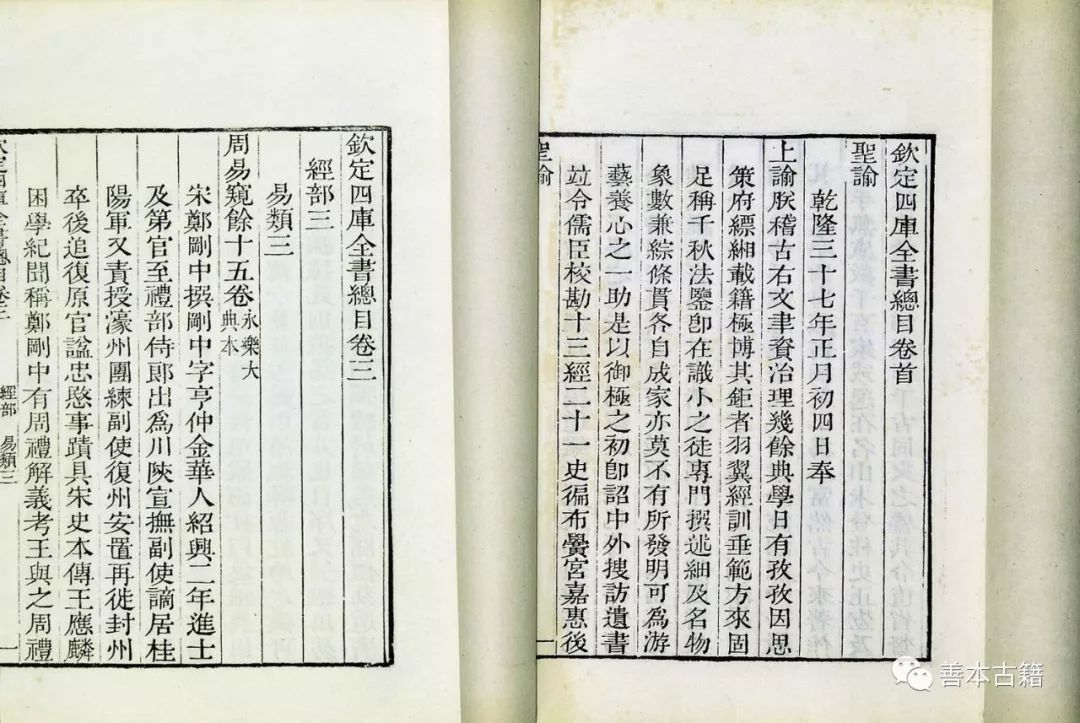 欽定四庫全書總目卷首
聖諭
乾隆三十七年正月初四日奉
上諭朕稽古右文聿資治理幾餘典學日有孜孜因思
策府縹緗載籍極博其鉅者羽翼經訓垂範方來固
足稱千秋法鑒卽在識小之徒專門撰述細及名物
象數兼綜條貫各自成家亦莫不有所發明可為游
藝養心之一助是以御極之初卽詔中外搜訪遺書
竝令儒臣校勘十三經二十一史徧布黌宮嘉惠後
聖諭
一
欽定四庫全書總目卷三
經部三
易類三
周易窺餘十五卷永樂大
典本
宋鄭剛中撰剛中字亨仲金華人紹興二年進士
及第官至禮部侍郎出為川陝宣撫副使謫居桂
陽軍又責授濠州團練副使復州安置再徙封州
卒後追復原官諡忠愍事蹟具宋史本傳王應麟
困學紀聞稱鄭剛中有周禮解義考王與之周禮
欽定四庫全書總目卷三
經部 易類三
一
善本古籍